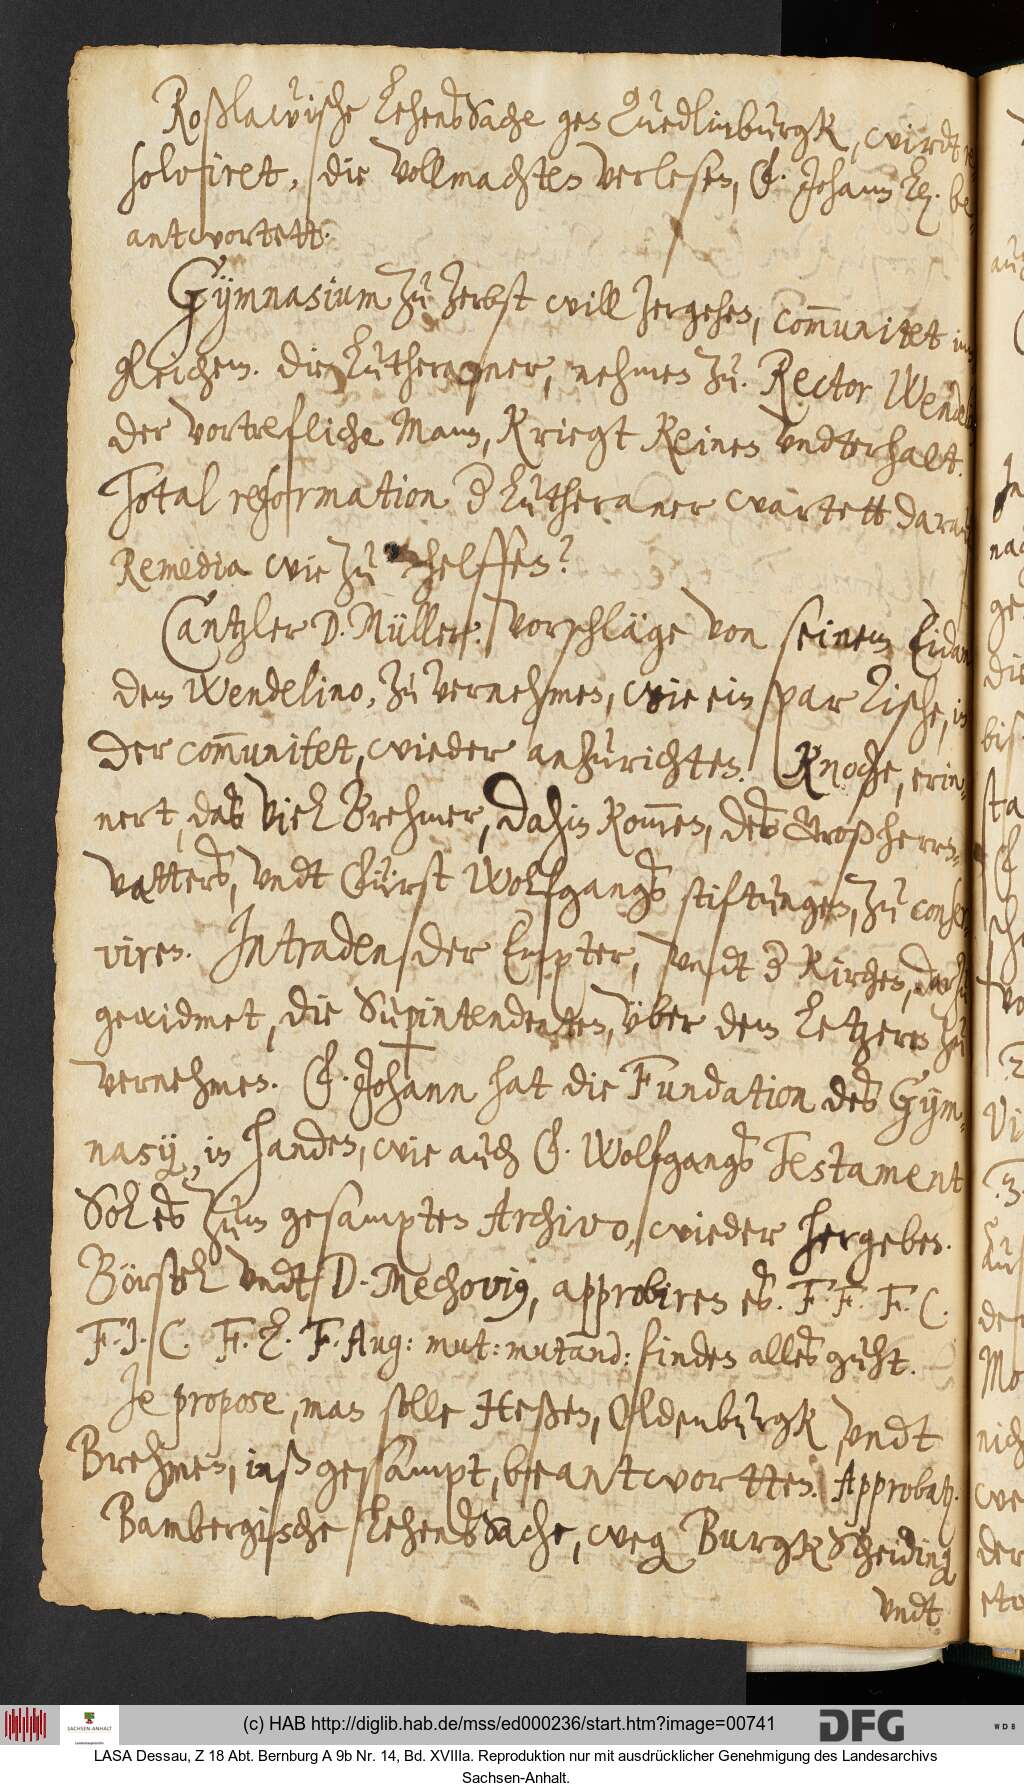 Roßlawische LehensSache gen Quedlinburgk, wirdt re
solviret, die Vollmachten verlesen, F. Johann
antwortett.
Gÿmnasium zu Zerbst will Zergehen, com̅unitet im
gleichem. die Lutheraner, nehmen zu. Rector Wendel
der vortrefliche Mann, Kriegt Keinen Undterhalt.
Total reformation d Lutheraner wartett darauf
Remedia wie zu helffen?
Cantzler D. Müller. Vorschläge von seinem Eidam
dem Wendelino, zu vernehmen, wie ein par Tische, in
der com̅unitet, wieder anzurichten. Knoche, erin-
nert, das viel Brehmer, dahin Kom̅en, des Großherren-
vatters, undt Fürst Wolfgangs stiftungen, zu conser-
viren. Intraden der Empter, undt d Kirchen, darzu
gewidmet, die Supintendenten, über dem Letzern zu
vernehmen. F. Johann hat die Fundation des Gÿm-
nasÿ, in handen, wie auch F. Wolfgangs Testament
Sol es zum gesampten Archivo, wieder hergeben.
Börstel undt D. Mechovig, approbiren es. F. F. F. C.
F. J. C. F. L. F. Aug: mut: mutand: finden alles guht.
Je propose, man solle Heßen, Oldenburgk undt
Brehmen, inß gesampt, beantwortten. Approbatz.
Bambergische LehensSache, weg Burgk Scheiding
undt
(c) HAB http://diglib.hab.de/mss/ed000236/start.htm?image=00741
SACHSEN-ANHALT
DFG
WDB
LASA Dessau, Z 18 Abt. Bernburg A 9b Nr. 14, Bd. XVIIIa. Reproduktion nur mit ausdrücklicher Genehmigung des Landesarchivs
Sachsen-Anhalt.